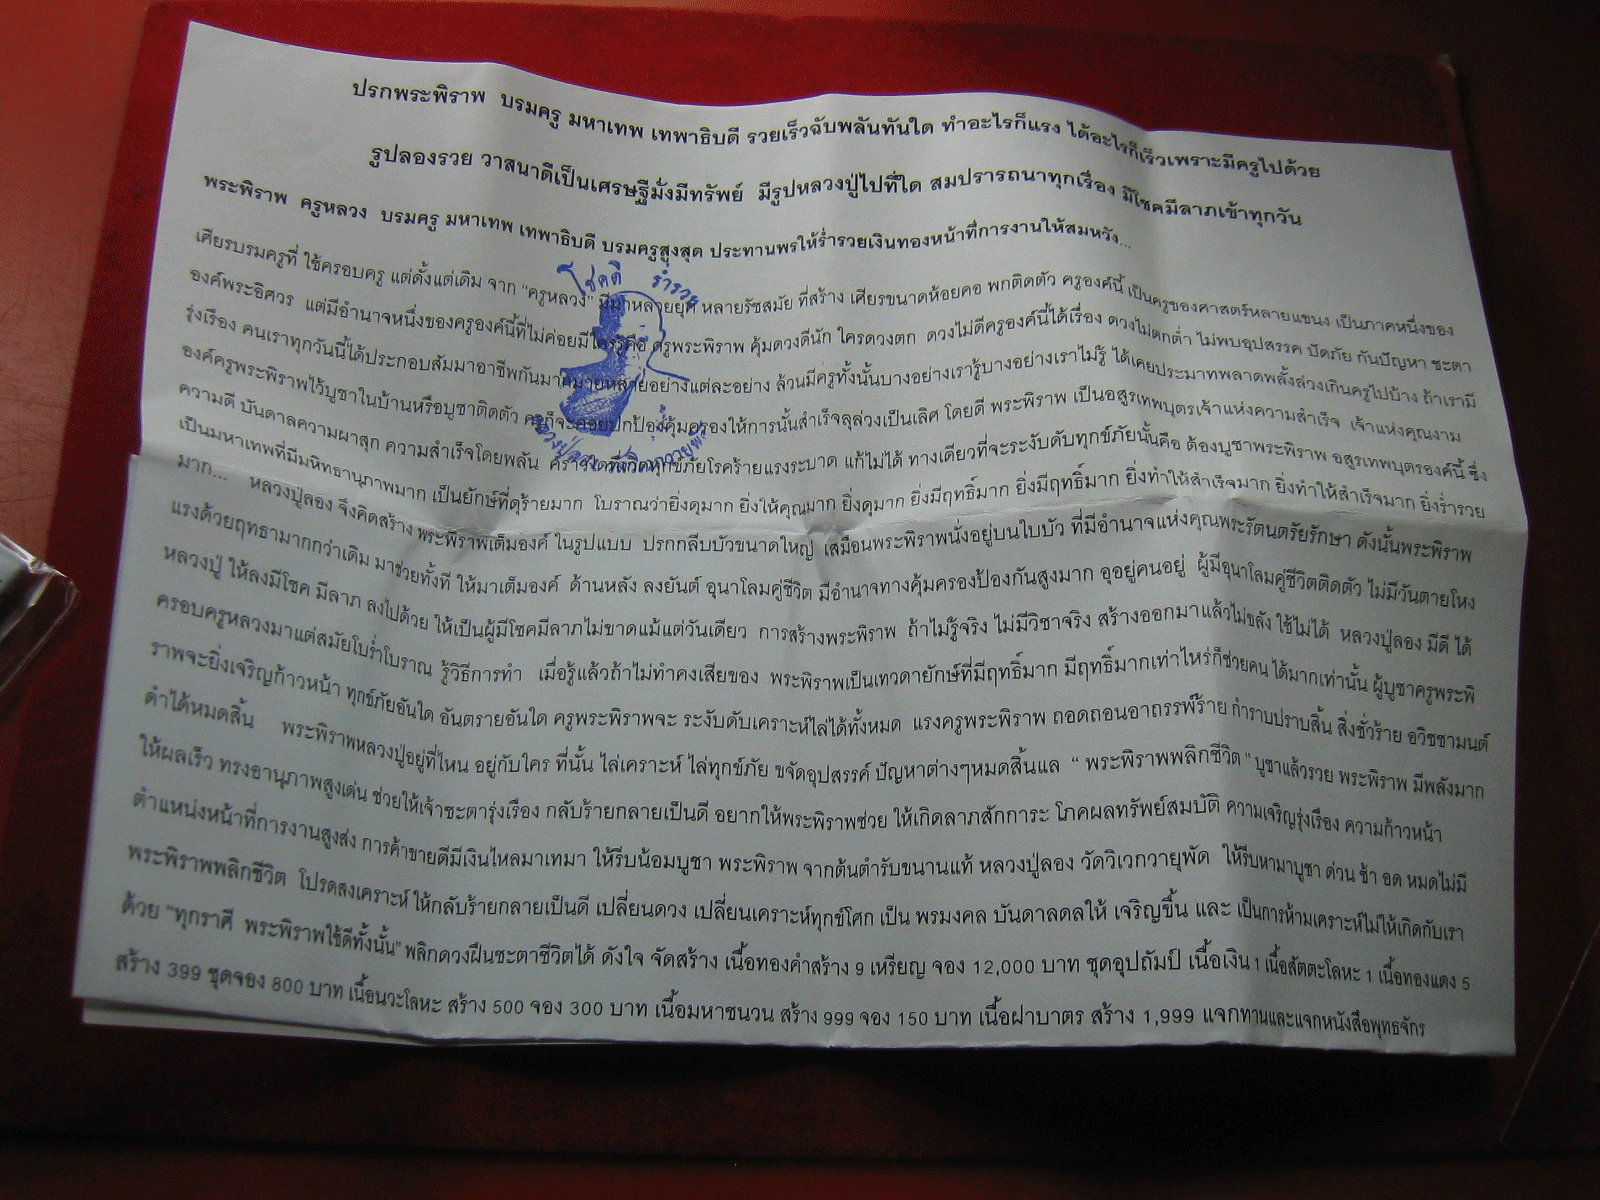 ปรกพระพิราพ บรมครู มหาเทพ เทพาธิบดี รวยเร็วฉับพลันทันใด ทำอะไรก็แรง ได้อะไรก็เร็วเพราะมีครูไปด้วย
รูปลองรวย วาสนาดีเป็นเศรษฐีมั่งมีทรัพย์ มีรูปหลวงปู่ไปที่ใด สมปรารถนาทุกเรื่อง มีโชคมีลาภเข้าทุกวัน
พระพิราพ ครูหลวง บรมครู มหาเทพ เทพาธิบดี บรมครูสูงสุด ประทานพรให้ร่ำรวยเงินทองหน้าที่การงานให้สมหวัง...
เศียรบรมครูที่ ใช้ครอบครู แต่ดั้งแต่เดิม จาก "ครูหลวง" มีมาหลายยุค หลายรัชสมัย ที่สร้าง เศียรขนาดห้อยคอ พกติดตัว ครูองค์นี้ เป็นครูของศาสตร์หลายแขนง เป็นภาคหนึ่งของ
องค์พระอิศวร แต่มีอำนาจหนึ่งของครูองค์นี้ที่ไม่ค่อยมีใครรู้คือ ครูพระพิราพ คุ้มดวงดีนัก ใครดวงตก ดวงไม่ดีครูองค์นี้ได้เรื่อง ดวงไม่ตกต่ำ ไม่พบอุปสรรค ปัดภัย กันปัญหา ชะตา
รุ่งเรือง คนเราทุกวันนี้ได้ประกอบสัมมาอาชีพกันมากมายหลายอย่างแต่ละอย่าง ล้วนมีครูทั้งนั้นบางอย่างเรารู้บางอย่างเราไม่รู้ ได้เคยประมาทพลาดพลั้งล่วงเกินครูไปบ้าง ถ้าเรามี
องค์ครูพระพิราพไว้บูชาในบ้านหรือบูชาติดตัว ครูก็จะคอยปกป้องคุ้มครองให้การนั้นสำเร็จลุล่วงเป็นเลิศ โดยดี พระพิราพ เป็นอสูรเทพบุตรเจ้าแห่งความสำเร็จ เจ้าแห่งคุณงาม
ความดี บันดาลความผาสุก ความสำเร็จโดยพลัน คราใดที่เกิดทุกข์ภัยโรคร้ายแรงระบาด แก้ไม่ได้ ทางเดียวที่จะระงับดับทุกข์ภัยนั้นคือ ต้องบูชาพระพิราพ อสูรเทพบุตรองค์นี้ ซึ่ง
เป็นมหาเทพที่มีมหิทธานุภาพมาก เป็นยักษ์ที่ดุร้ายมาก โบราณว่ายิ่งดุมาก ยิ่งให้คุณมาก ยิ่งดุมาก ยิ่งมีฤทธิ์มาก ยิ่งมีฤทธิ์มาก ยิ่งทำให้สำเร็จมาก ยิ่งทำให้สำเร็จมาก ยิ่งร่ำรวย
มาก... หลวงปู่ลอง จึงคิดสร้าง พระพิราพเต็มองค์ ในรูปแบบ ปรกกลีบบัวขนาดใหญ่ เสมือนพระพิราพนั่งอยู่บนใบบัว ที่มีอำนาจแห่งคุณพระรัตนตรัยรักษา ดังนั้นพระพิราพ
แรงด้วยฤทธามากกว่าเดิม มาช่วยทั้งที ให้มาเต็มองค์ ด้านหลัง ลงยันต์ อุนาโลมคู่ชีวิต มีอำนาจทางคุ้มครองป้องกันสูงมาก อุอยู่คนอยู่ ผู้มีอุนาโลมคู่ชีวิตติดตัว ไม่มีวันตายโหง
หลวงปู่ ให้ลงมีโชค มีลาภ ลงไปด้วย ให้เป็นผู้มีโชคมีลาภไม่ขาดแม้แต่วันเดียว การสร้างพระพิราพ ถ้าไม่รู้จริง ไม่มีวิชาจริง สร้างออกมาแล้วไม่ขลัง ใช้ไม่ได้ หลวงปู่ลอง มีดี ได้
ครอบครูหลวงมาแต่สมัยโบร่ำโบราณ รู้วิธีการทำ เมื่อรู้แล้วถ้าไม่ทำคงเสียของ พระพิราพเป็นเทวดายักษ์ที่มีฤทธิ์มาก มีฤทธิ์มากเท่าไหร่ก็ช่วยคน ได้มากเท่านั้น ผู้บูชาครูพระพิ
ราพจะยิ่งเจริญก้าวหน้า ทุกข์ภัยอันใด อันตรายอันใด ครูพระพิราพจะ ระงับดับเคราะห์ไล่ได้ทั้งหมด แรงครูพระพิราพ ถอดถอนอาถรรพ์ร้าย กำราบปราบสิ้น สิ่งชั่วร้าย อวิชชามนต์
ดำได้หมดสิ้น พระพิราพหลวงปู่อยู่ที่ไหน อยู่กับใคร ที่นั้น ไล่เคราะห์ ไล่ทุกข์ภัย ขจัดอุปสรรค์ ปัญหาต่างๆหมดสิ้นแล " พระพิราพพลิกชีวิต " บูชาแล้วรวย พระพิราพ มีพลังมาก
ให้ผลเร็ว ทรงอานุภาพสูงเด่น ช่วยให้เจ้าชะตารุ่งเรือง กลับร้ายกลายเป็นดี อยากให้พระพิราพช่วย ให้เกิดลาภสักการะ โภคผลทรัพย์สมบัติ ความเจริญรุ่งเรือง ความก้าวหน้า
ตำแหน่งหน้าที่การงานสูงส่ง การค้าขายดีมีเงินไหลมาเทมา ให้รีบน้อมบูชา พระพิราพ จากต้นตำรับขนานแท้ หลวงปู่ลอง วัดวิเวกวายุพัด ให้รีบหามาบูชา ด่วน ช้า อด หมดไม่มี
พระพิราพพลิกชีวิต โปรดสงเคราะห์ ให้กลับร้ายกลายเป็นดี เปลี่ยนดวง เปลี่ยนเคราะห์ทุกข์โศก เป็น พรมงคล บันดาลดลให้ เจริญขึ้น และ เป็นการห้ามเคราะห์ไม่ให้เกิดกับเรา
ด้วย "ทุกราศี พระพิราพใช้ดีทั้งนั้น" พลิกดวงฝืนชะตาชีวิตได้ ดังใจ จัดสร้าง เนื้อทองคำสร้าง 9 เหรียญ จอง 12,000 บาท ชุดอุปถัมป์ เนื้อเงิน 1 เนื้อสัตตะโลหะ 1 เนื้อทองแดง 5
สร้าง 399 ชุดจอง 800 บาท เนื้อนวะโลหะ สร้าง 500 จอง 300 บาท เนื้อมหาชนวน สร้าง 999 จอง 150 บาท เนื้อฝาบาตร สร้าง 1,999 แจกทานและแจกหนังสือพุทธจักร
โชคดี ร่ำรวย
หลวงปู่ลอง วัดวิเวกวายุพัด